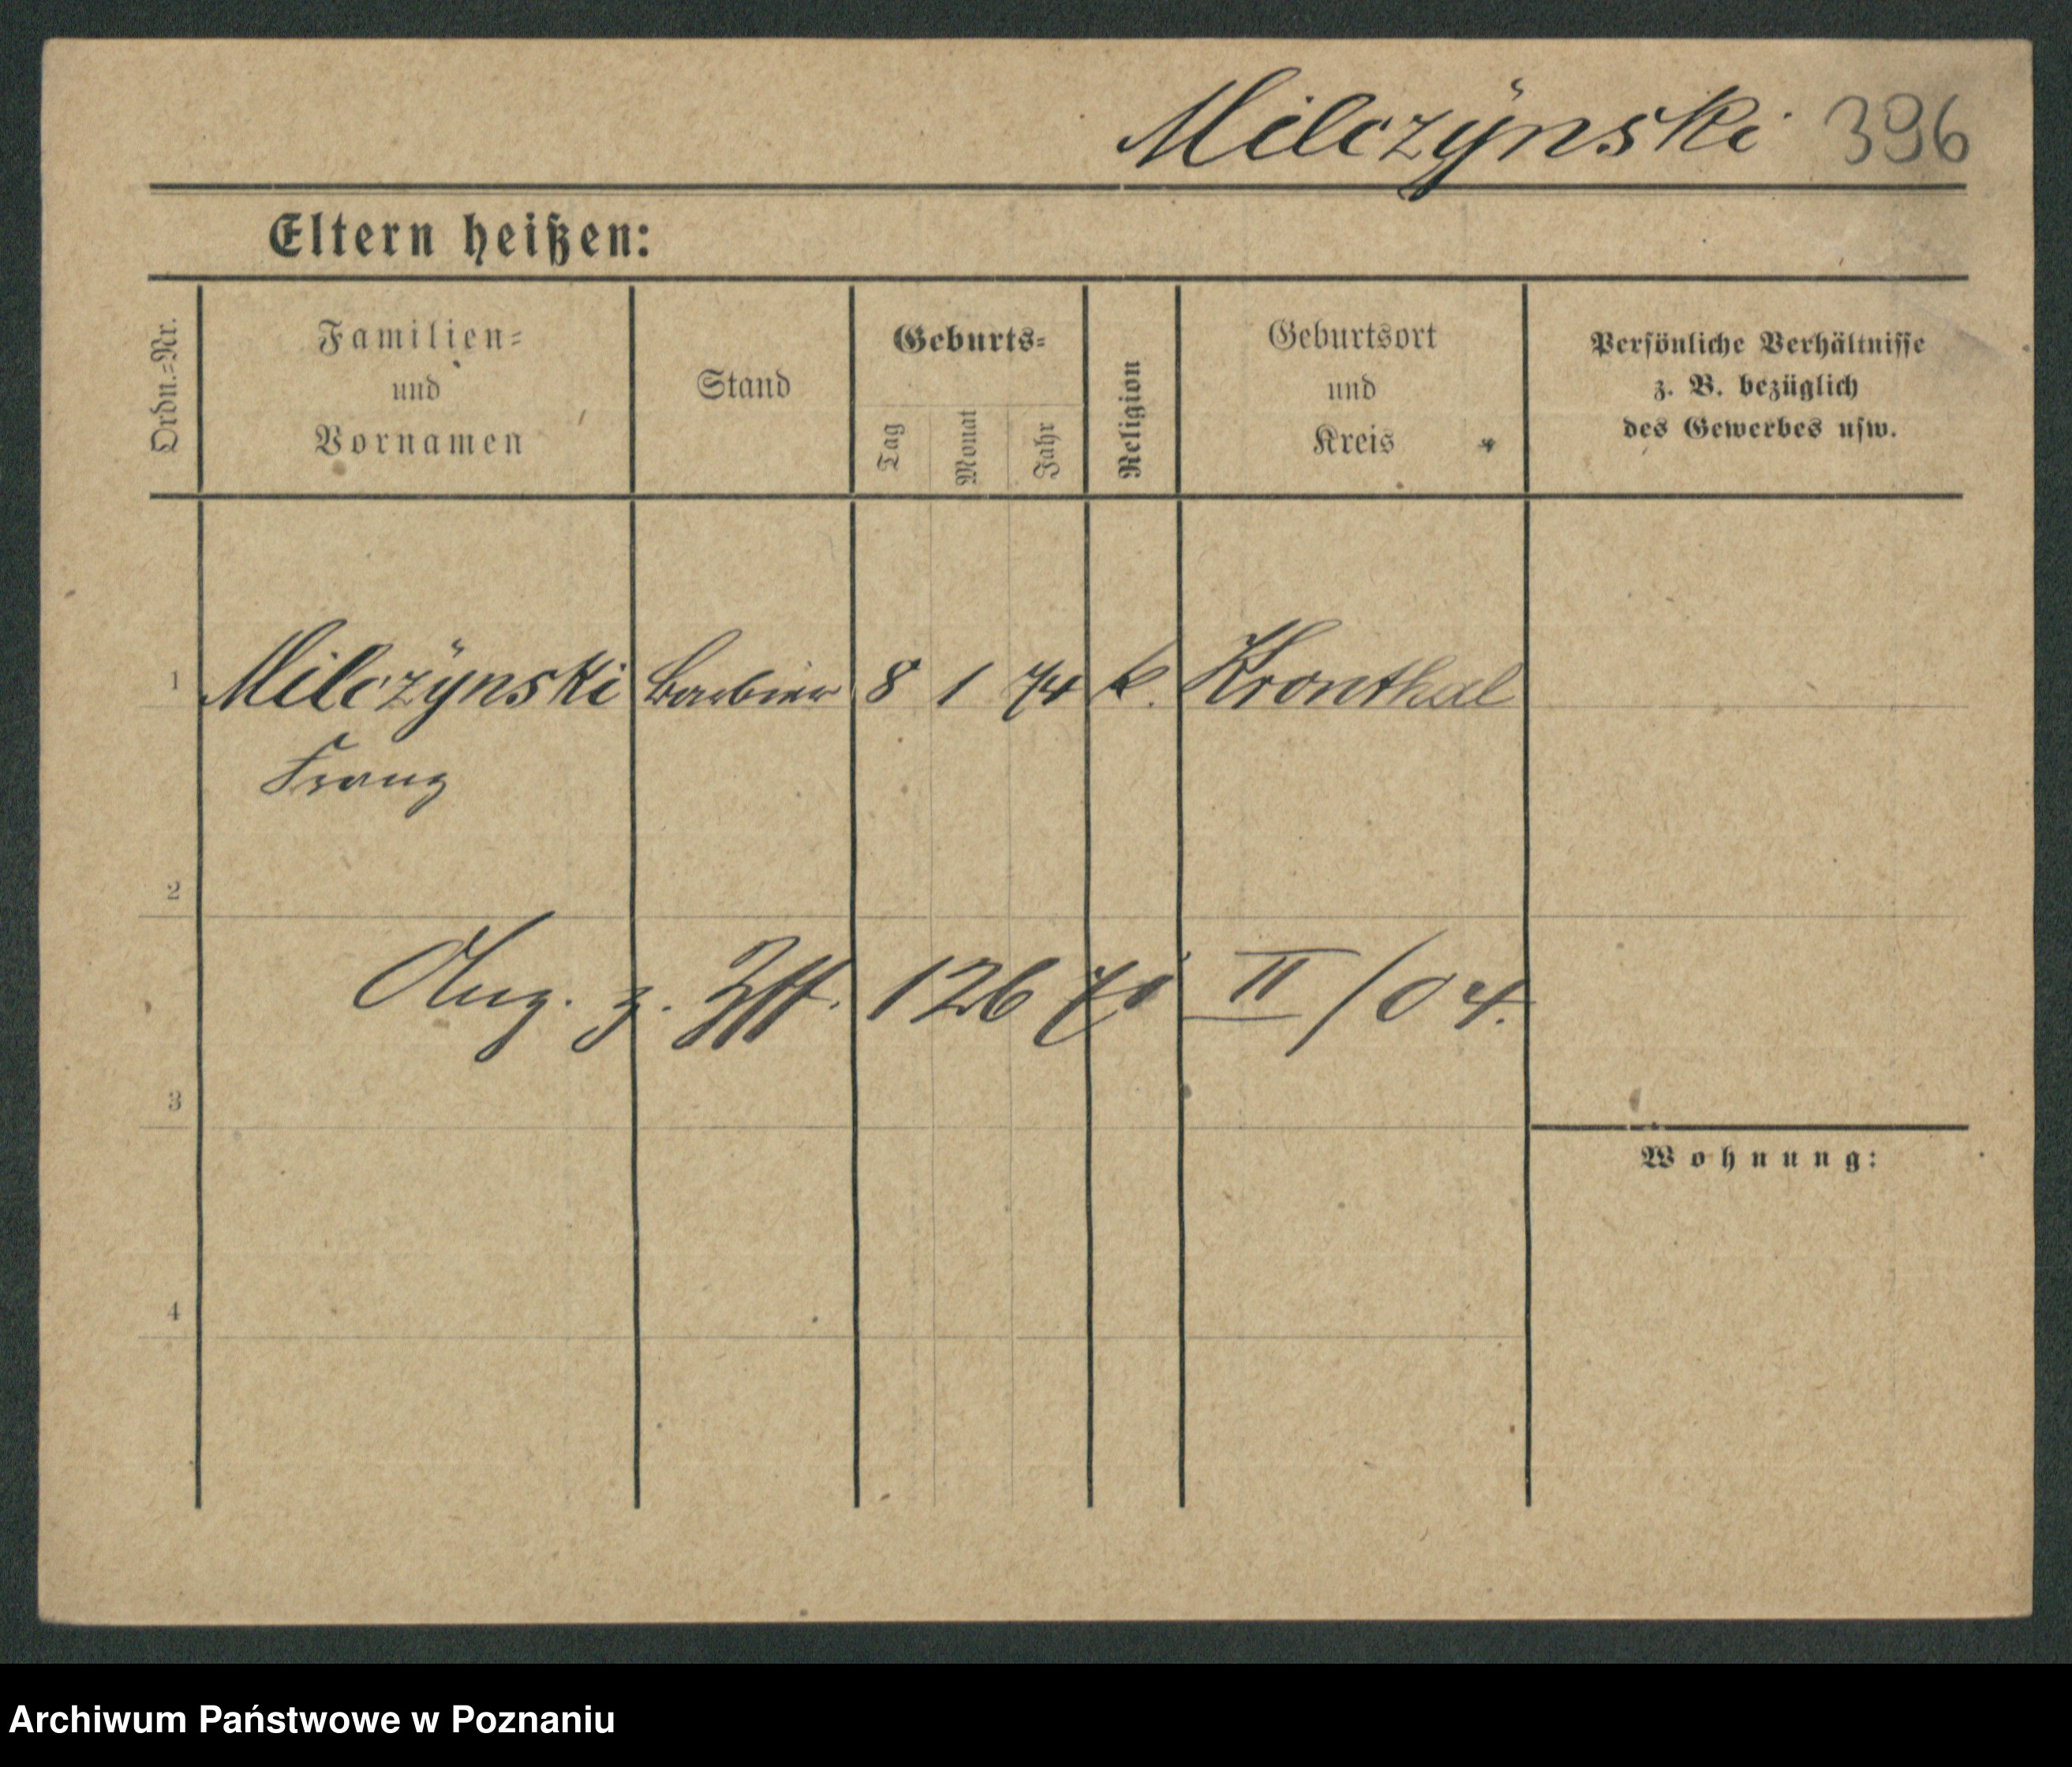 Milczÿnski 396
Eltern heißen:
Ordn.=Nr.
Familien=
und
Vornamen
Stand
Geburts=
Tag
Monat
Jahr
Religion
Geburtsort
und
Kreis
Persönliche Verhältnisse
z. B. bezüglich
des Gewerbes usw.
1 Milczÿnski Barbier 8 1 74 k. Kronthal
Franz
2
z. 126 II/04.
3
Wohnung:
4
Archiwum Państwowe w Poznaniu